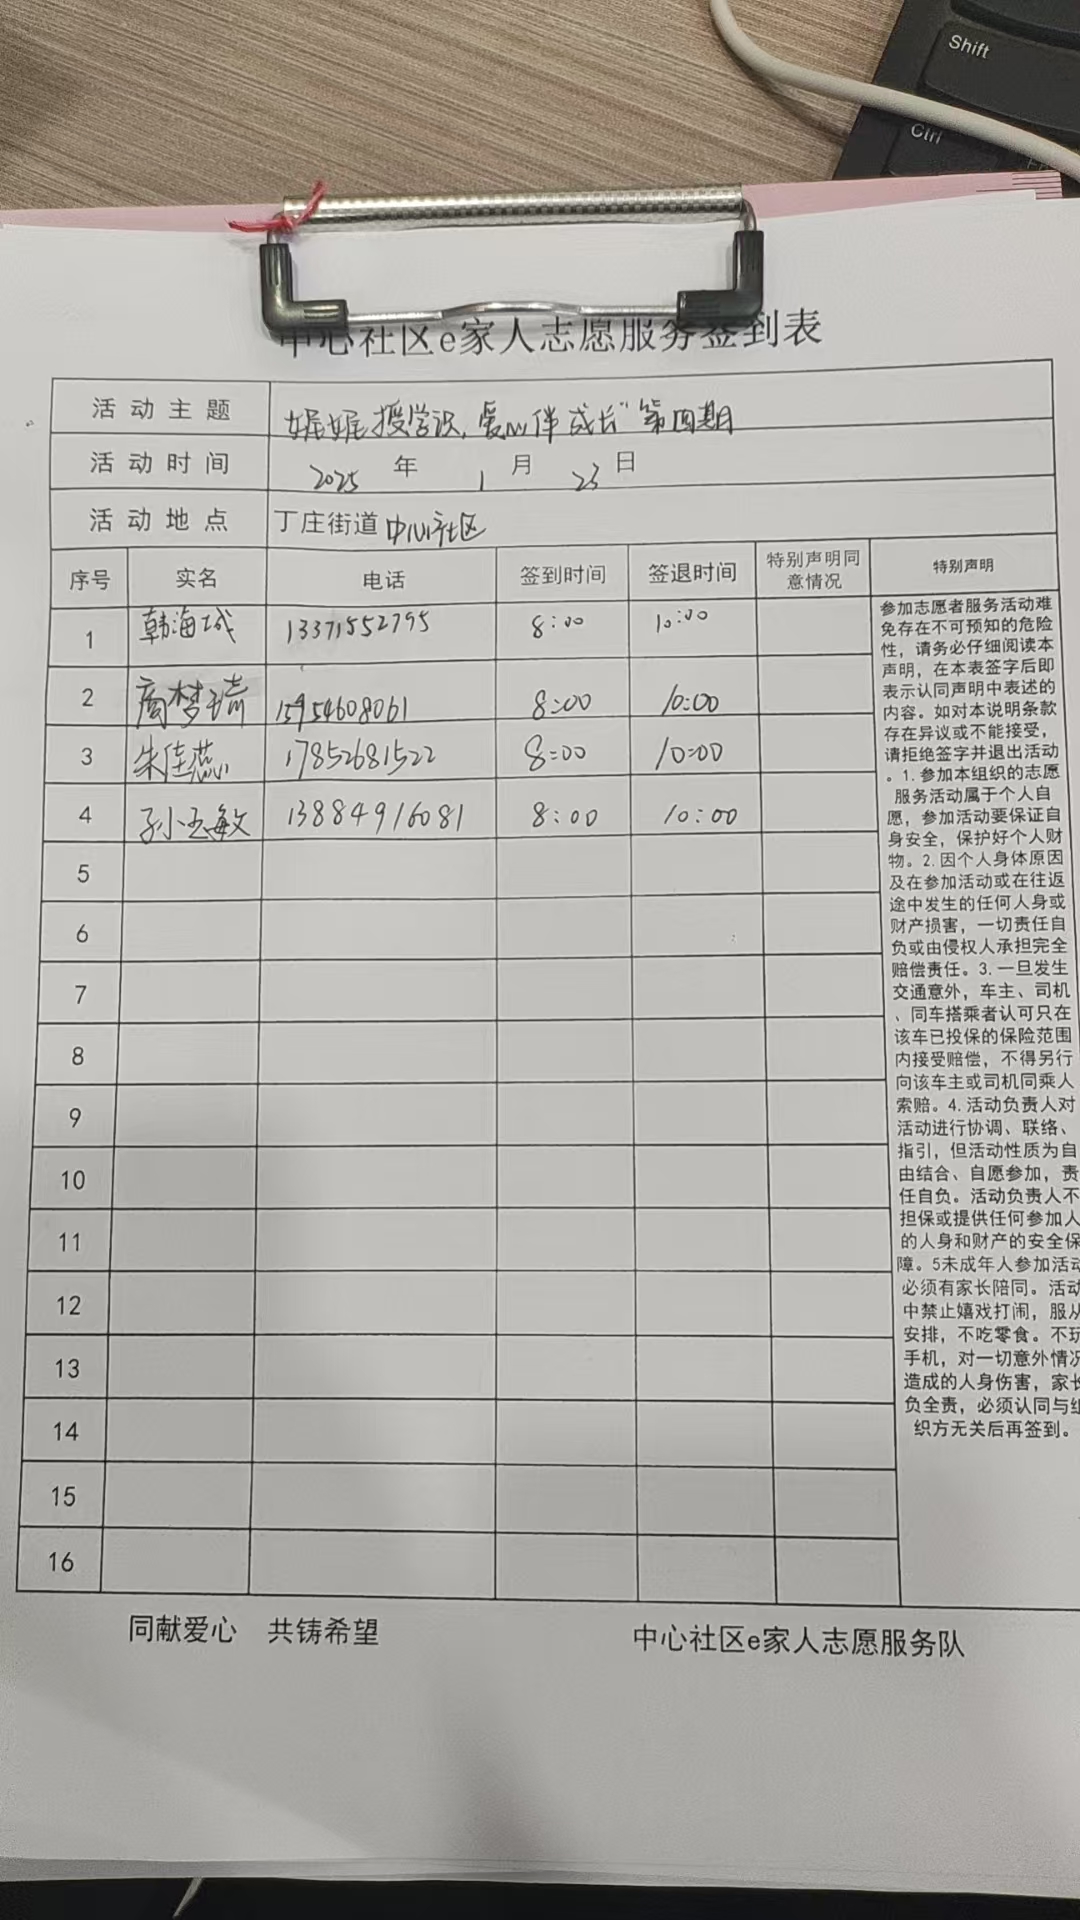 Shift
Ctrl
中心社区e家人志愿服务签到表
活动主题 娓娓授学识,爱心伴成长"第四期
活动时间 2025年1月23日
活动地点 丁庄街道中心社区
序号 实名 电话 签到时间 签退时间 特别声明同意情况 特别声明
1 韩海城 13371552795 8:00 10:00
2 商梦琦 15954608061 8:00 10:00
3 朱佳蕊 17852681522 8:00 10:00
4 孙小敏 13884916081 8:00 10:00
5
6
7
8
9
10
11
12
13
14
15
16
参加志愿者服务活动难
免存在不可预知的危险
性,请务必仔细阅读本
声明,在本表签字后即
表示认同声明中表述的
内容。如对本说明条款
存在异议或不能接受,
请拒绝签字并退出活动
。1.参加本组织的志愿
服务活动属于个人自
愿,参加活动要保证自
身安全,保护好个人财
物。2.因个人身体原因
及在参加活动或在往返
途中发生的任何人身或
财产损害,一切责任自
负或由侵权人承担完全
赔偿责任。3.一旦发生
交通意外,车主、司机
、同车搭乘者认可只在
该车已投保的保险范围
内接受赔偿,不得另行
向该车主或司机同乘人
索赔。4.活动负责人对
活动进行协调、联络、
指引,但活动性质为自
由结合、自愿参加,责
任自负。活动负责人不
担保或提供任何参加人
的人身和财产的安全保
障。5未成年人参加活动
必须有家长陪同。活动
中禁止嬉戏打闹,服从
安排,不吃零食。不玩
手机,对一切意外情况
造成的人身伤害,家长
负全责,必须认同与组
织方无关后再签到。
同献爱心 共铸希望
中心社区e家人志愿服务队